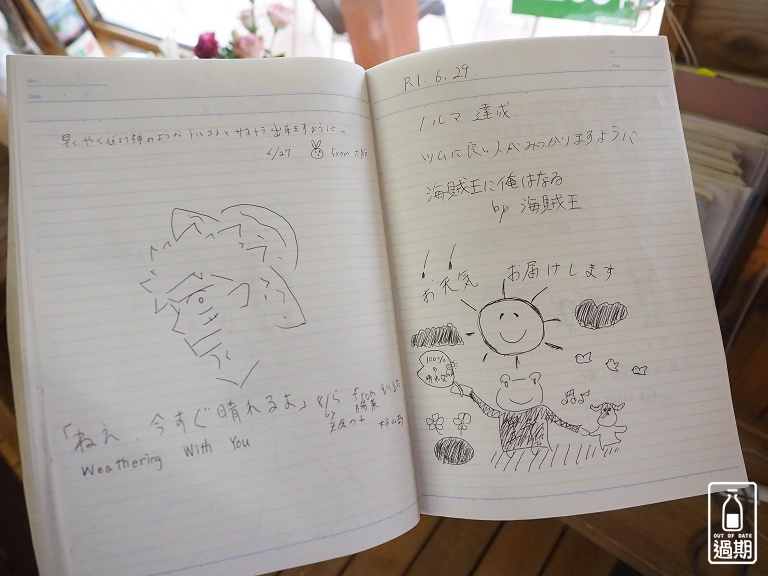 早くやくびょう神のような トルコトとサヨナラ出来ますように。
6/27 from
「ねぇ、今すぐ晴れるよ」
from
陽菜
by
Weathering With You
R1.6.29
ノルマ 達成
ツムに良い人がみつかりますように
海賊王に俺はなる
by 海賊王
お天気 お届けします
100%の晴れ女
OUT OF DATE
過期